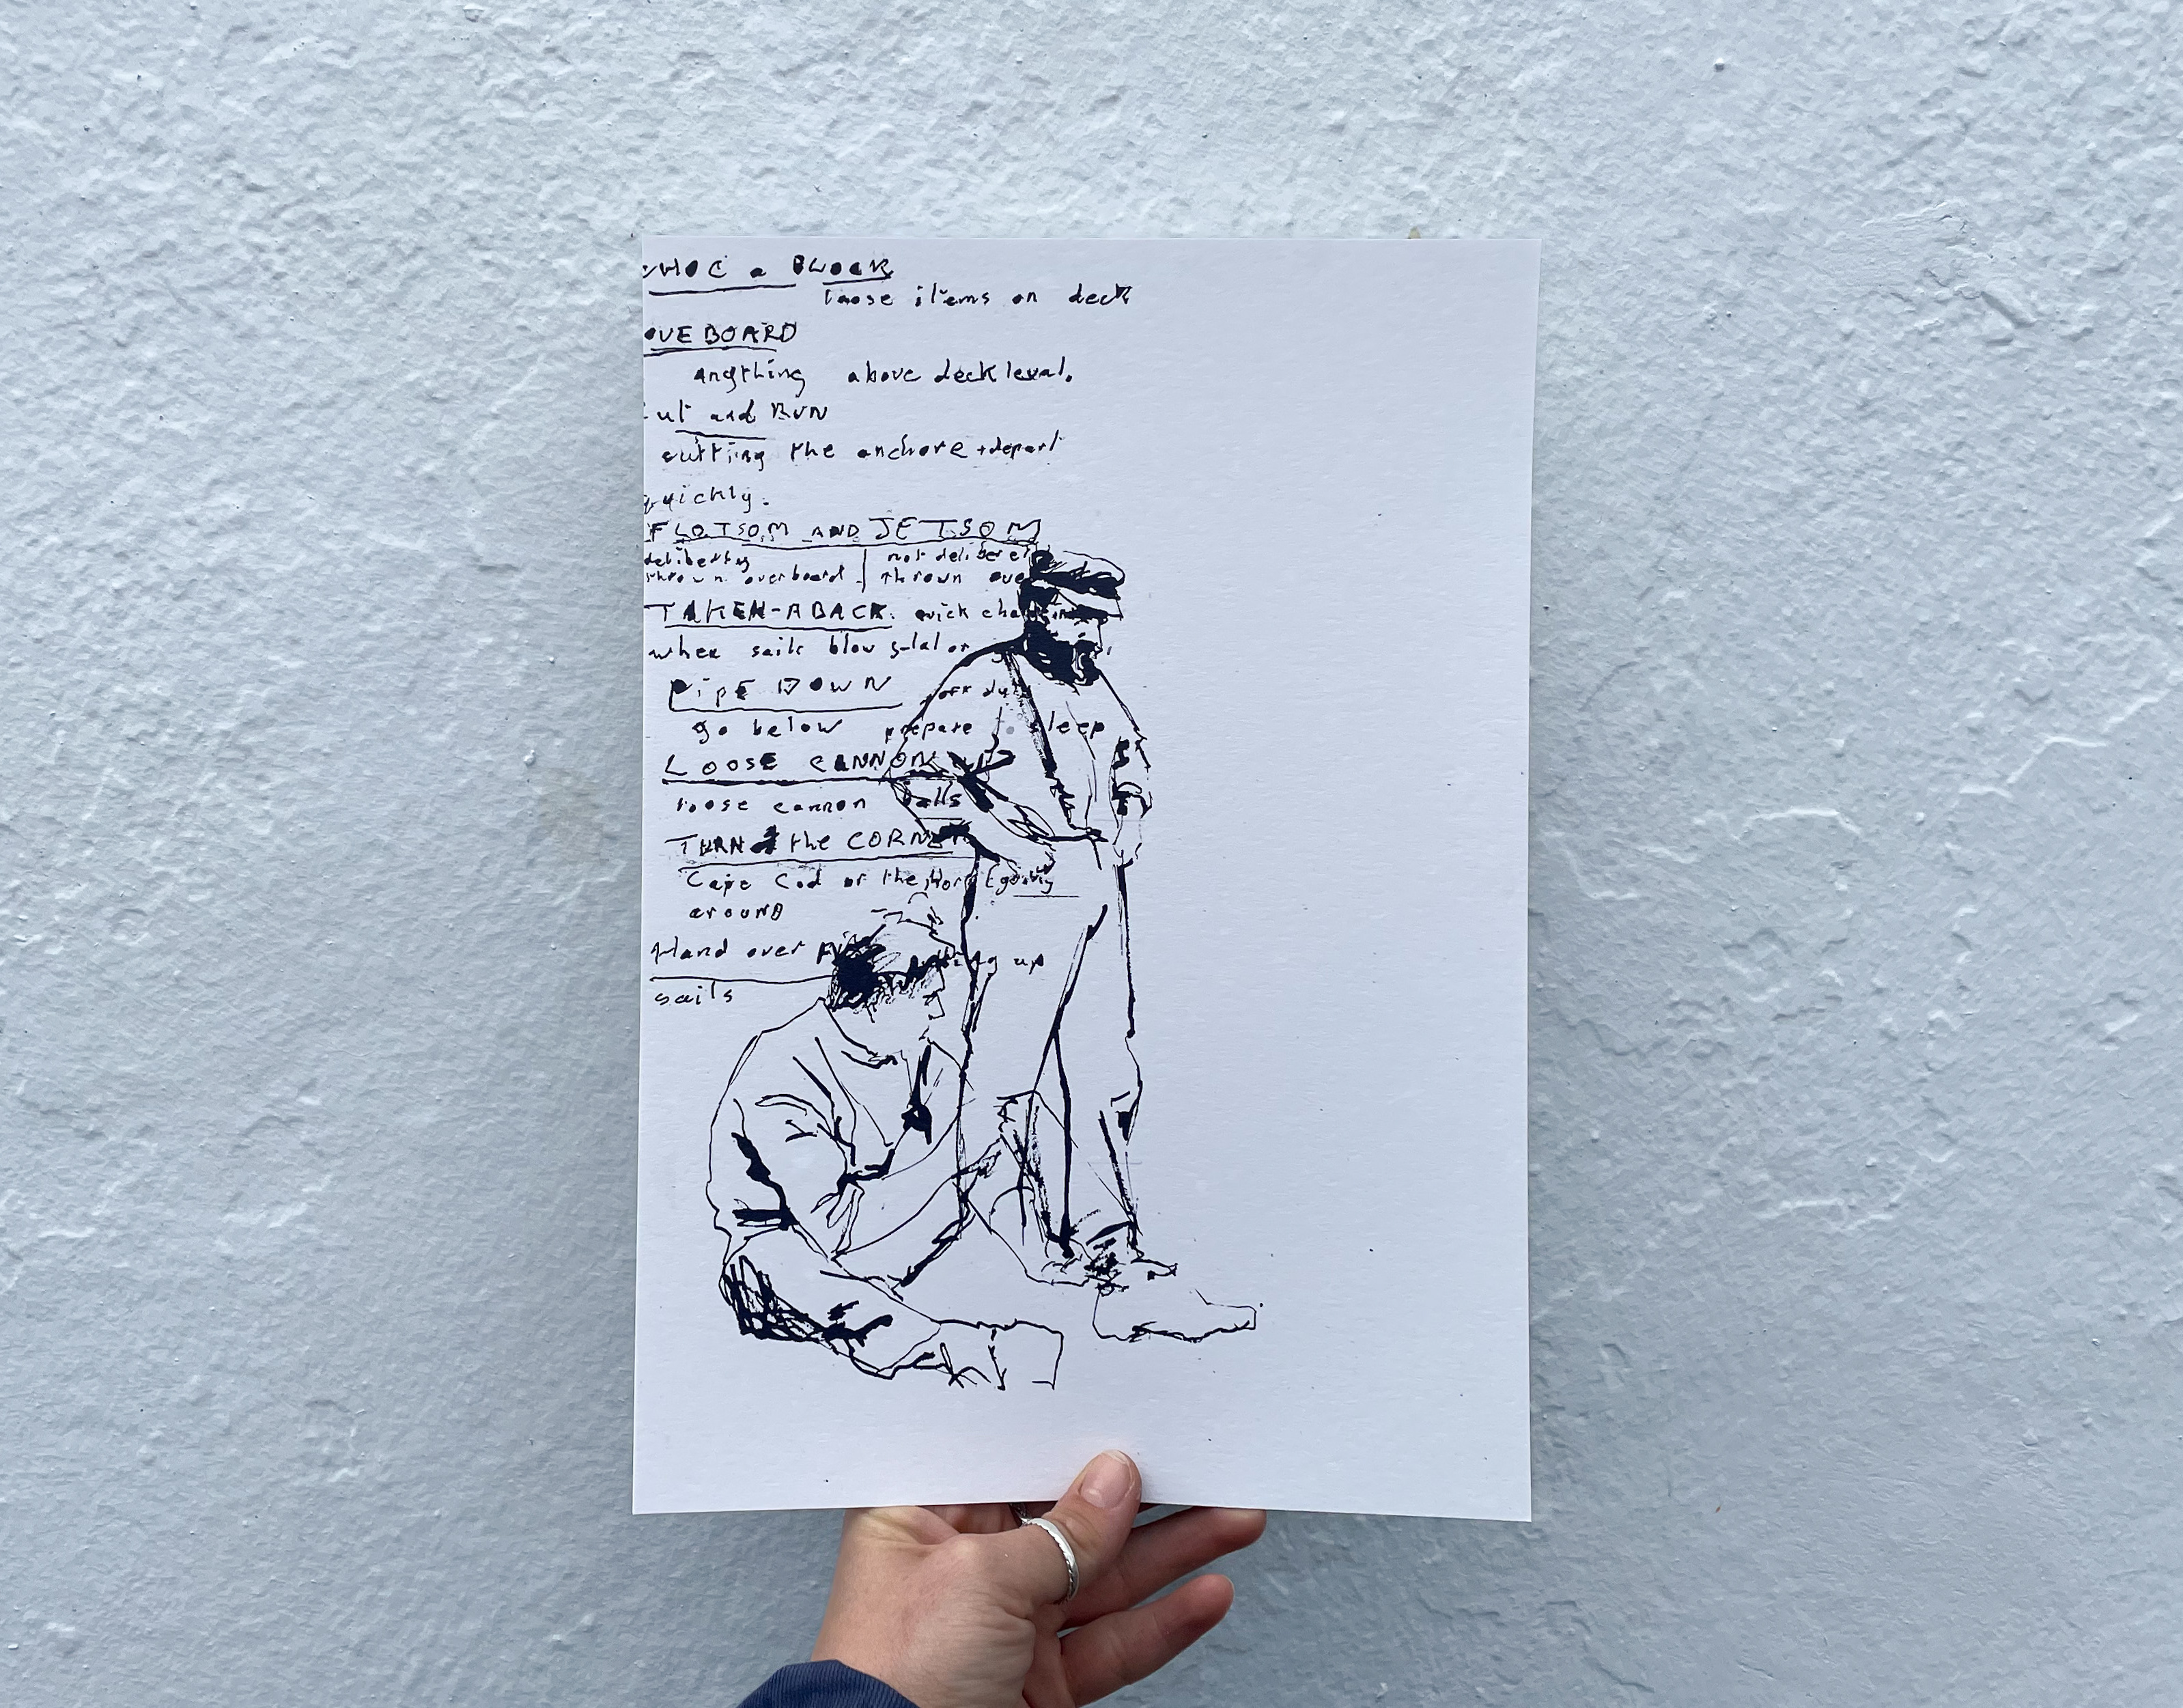 CHOC a BLOCK
loose items on deck
OVEBOARD
anything above deck level.
Cut and RUN
cutting the anchore + depart
quickly.
FLOTSOM AND JETSOM
not deliberet
thrown overboard thrown ove
TAKEN-ABACK. quick
when sails blow
PIPE DOWN off du
go below prepare sleep
LOOSE CANNON
loose cannon balls
TURN the CORNER
Cape Cod or the Horn
around
Hand over up
sails